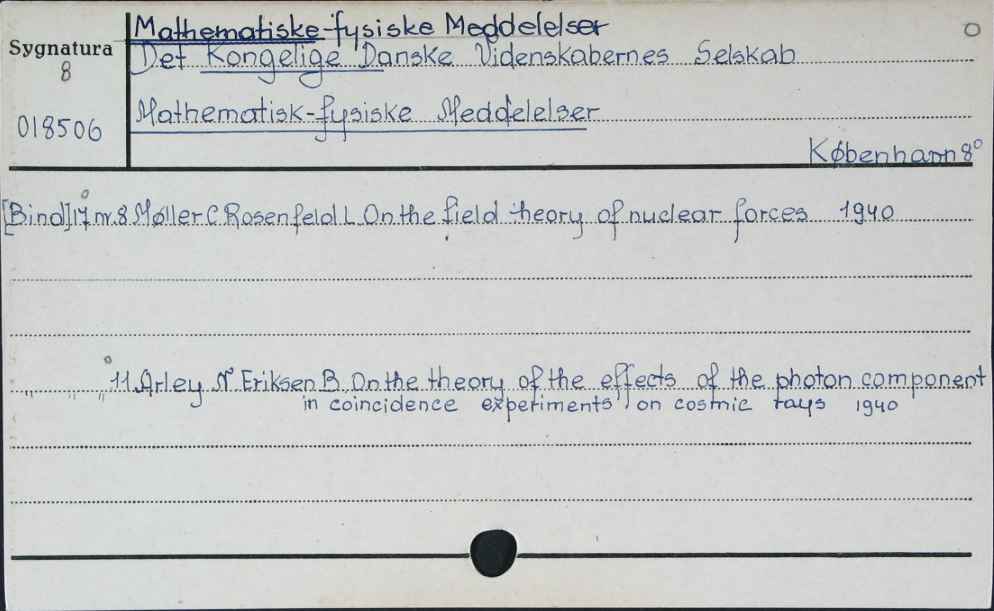 Mathematiske-fysiske Meddelelser
O
Sygnatura
8
018506
Det Kongelige Danske Videnskabernes Selskab
Mathematisk-fysiske Meddelelser
København 8°
[Bind] 17 nr. 8 Møller C. Rosenfeld L. On the field theory of nuclear forces 1940
„ „ „ 11 Arley N. Eriksen B. On the theory of the effects of the photon component
in coincidence experiments on cosmic rays 1940